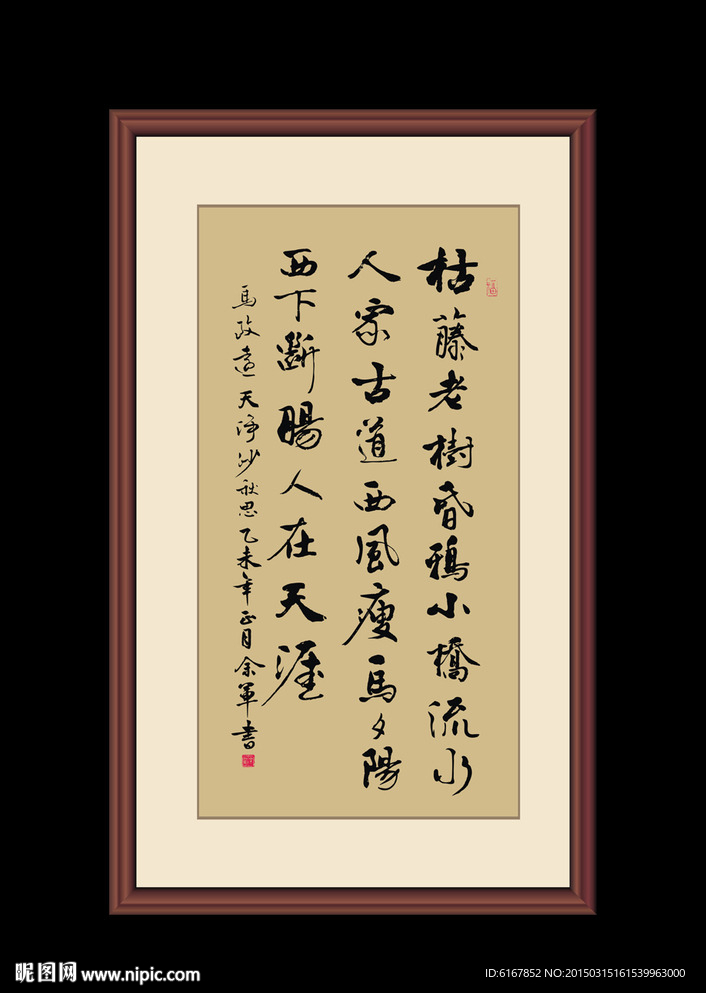 枯藤老樹昏鴉小橋流水
人家古道西風瘦馬夕陽
西下斷腸人在天涯
馬致遠天淨沙秋思乙未年正月余軍書
昵图网 www.nipic.com
ID:6167852 NO:20150315161539963000